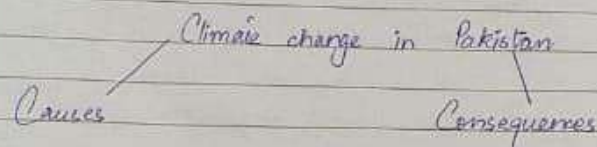 Climate change in Pakistan
Causes
Consequences